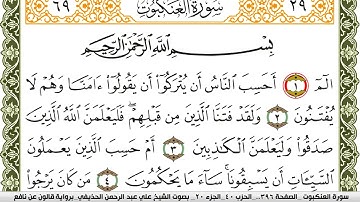 ٦٩ سُورَةُ العَنكَبُوتِ ٢٩
بِسْمِ اللَّهِ الرَّحْمَٰنِ الرَّحِيمِ
أَلَٓمِّٓ ١ أَحَسِبَ النَّاسُ أَنْ يُتْرَكُوٓا أَن يَقُولُوٓا ءَامَنَّا وَهُمْ لَا
يُفْتَنُونَ ٢ وَلَقَدْ فَتَنَّا الَّذِينَ مِن قَبْلِهِمْ فَلَيَعْلَمَنَّ اللَّهُ الَّذِينَ
صَدَقُوا وَلَيَعْلَمَنَّ الْكَٰذِبِينَ ٣ أَمْ حَسِبَ الَّذِينَ يَعْمَلُونَ
السَّيِّـَٔاتِ أَن يَسْبِقُونَا سَآءَ مَا يَحْكُمُونَ ٤ مَن كَانَ يَرْجُوا
سورة العنكبوت . الصفحة ٣٩٦ . الحزب ٤٠ . الجزء ٢٠ . بصوت الشيخ علي عبد الرحمن الحذيفي . برواية قالون عن نافع